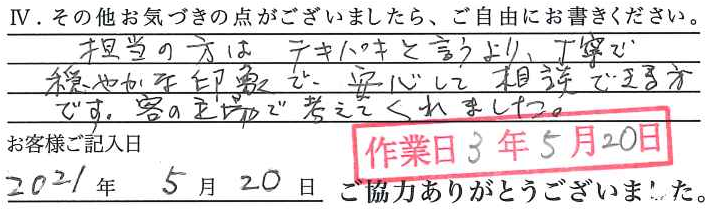 Ⅳ．その他お気づきの点がございましたら、ご自由にお書きください。
担当の方は テキパキと言うより、丁寧で
穏やかな印象で、安心して相談できる方
です。客の立場で考えてくれました。
お客様ご記入日
作業日 3 年 5 月 20 日
2021 年 5 月 20 日 ご協力ありがとうございました。